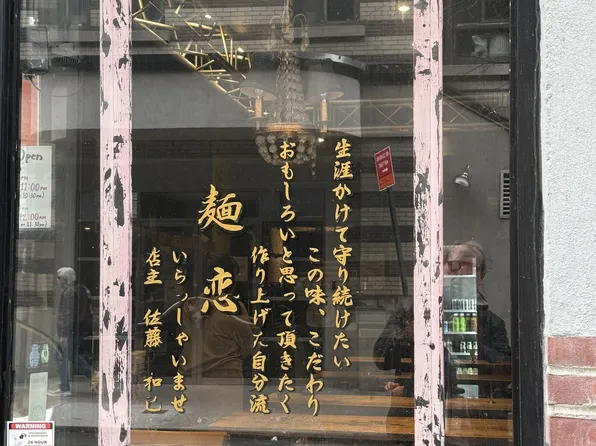 生涯かけて守り続けたい
この味、こだわり
おもしろいと思って頂きたく
作り上げた自分流
麺恋
いらっしゃいませ
店主 佐藤 和已
Open
11:00 PM
WARNING
24 HOUR